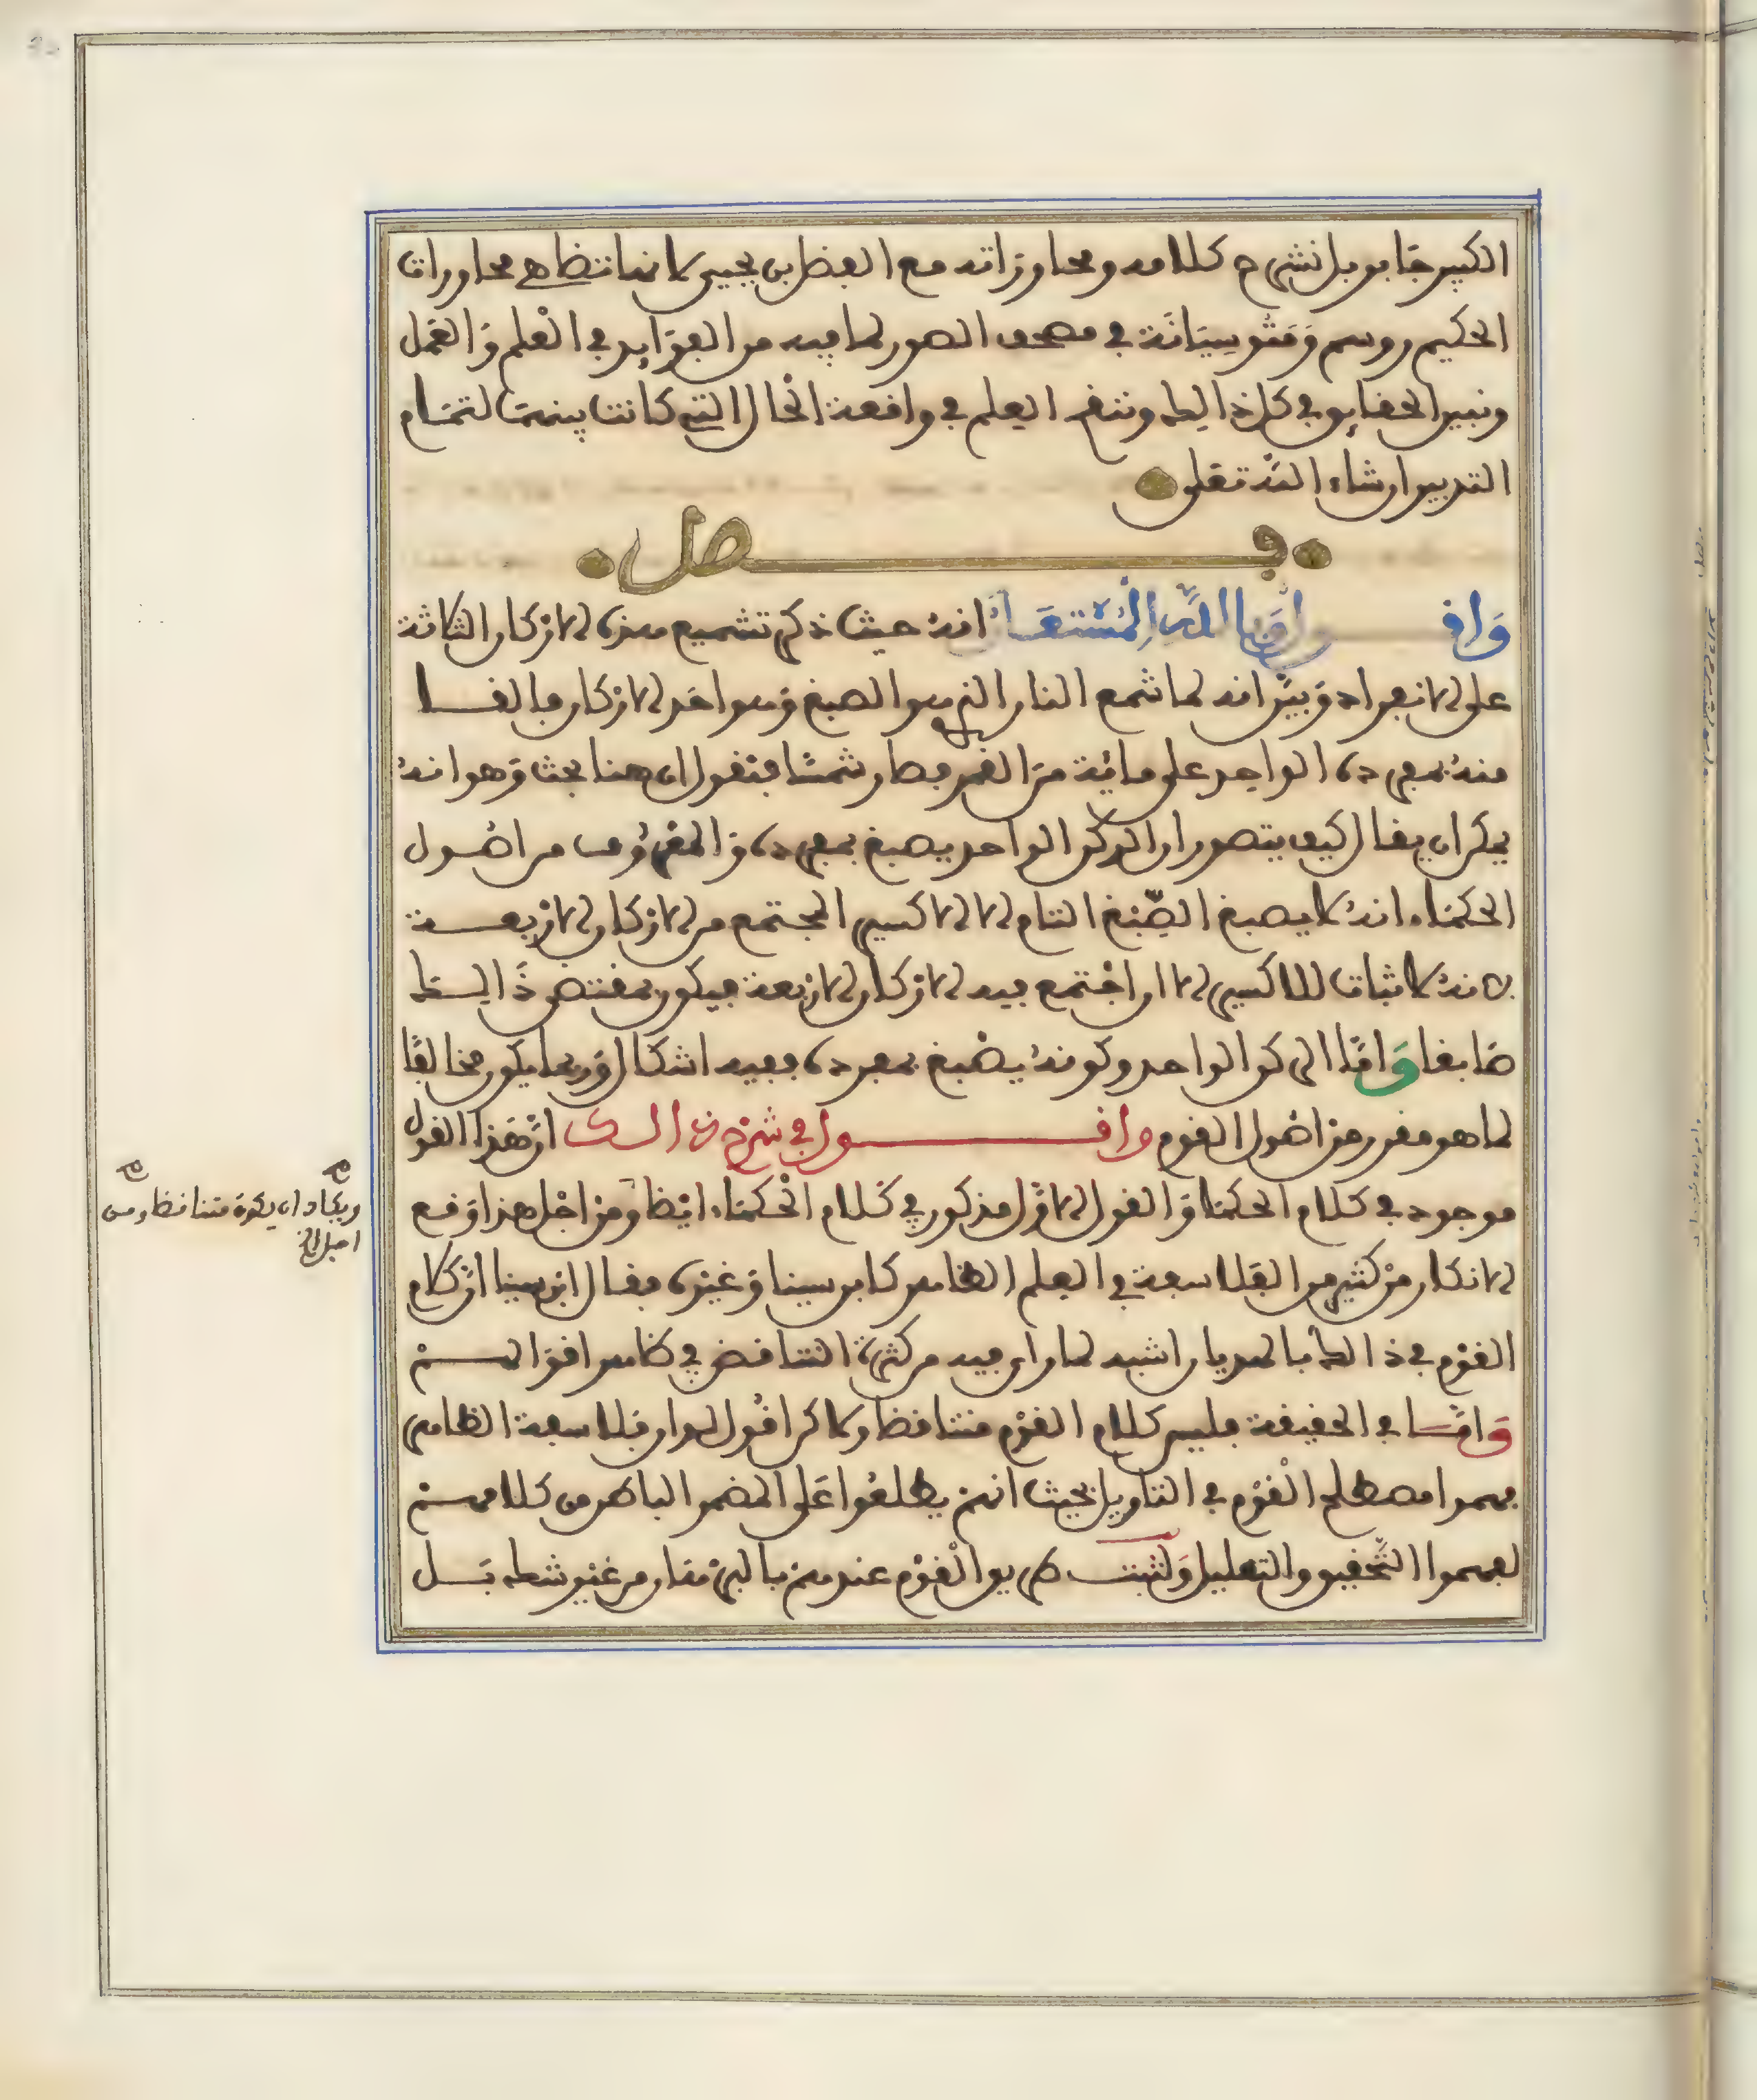 الكبير جابر بل نشرح كلامه ومحاوراته مع الفضل بن يحيى لانها تضاهي محاورات
الحكيم روسم وَمَثوسِيَانَة في مصحف الصور لما فيه من الفوَايد في العْلم وَالعَمل
ونبين الحقايق في كل ذالك وننقد العلم في واقعة الحال التي كانت بينهمَا لتمَام
التدبير ان شاء اللَّه تعَلى
فصل
وَاقول وَانا باللَّه المُسْتعَان انهُ حيث ذكر تشميع هذه الاركان الثلاثة
على الانفراد وَبيَّن انه لما شمع النار الذي هو الصبغ وَهو احَد الاركان فالقـا
منهُ بمفرده الواحد على مائة منَ القمر فصار شمسًا فنقول ان هنا بحث وَهو انهُ
يمكن ان يقال كيف يتصور ان الركن الواحد يصبغ بمفرده وَالمعْرُوف من اصُـول
الحكمَاء انهُ لا يصبغ الصِّبْغ التام الا الاكسير المجتمع من الاركان الارْبعـة
لانهُ لا ثبات للاكسير الا ان اجْتمع فيه الاركان الارْبعة فيكون بمقتضى ذَالـك
صَابغا وَامَّا الركن الواحد وكونهُ يصْبغ بمفرده ففيه اشكال وَربما يكون مخالفًا
لما هو مقرر من اصُول القوم واقـول في شرح ذالـك ان هَذا القول
موجود في كلام الحكمَا وَالقول الاوَّل مذكور في كَلام الحْكمَاء ايْضا وَمن اجْل هذا وَقع
الانكار منْ كثير من الفلاسفة في العلم الظاهر كابن سينا وَغيْره فقال ابن سينا ان كلام
القوْم في ذالك بالهديان اشبه لما راى فيه من كثرة التناقض في ظاهر اقوَالهـم
وَامَّـا في الحقيقة فليس كلام القوْم متناقضا ولاكن اقُول لو ان فلاسفة الظاهر
فهموا مصطلح القْوْم في التاويل بحيث انهم يطلعُوا عَلى المضمر الباطن من كلامهـم
لفهموا التَّحقيق والتعليل وَلثبت طريق القْوْم عندهم بالبرْهان من غيْر شك بَـل
ويكاد ان يكون متناقضا ومن
اجل الخ